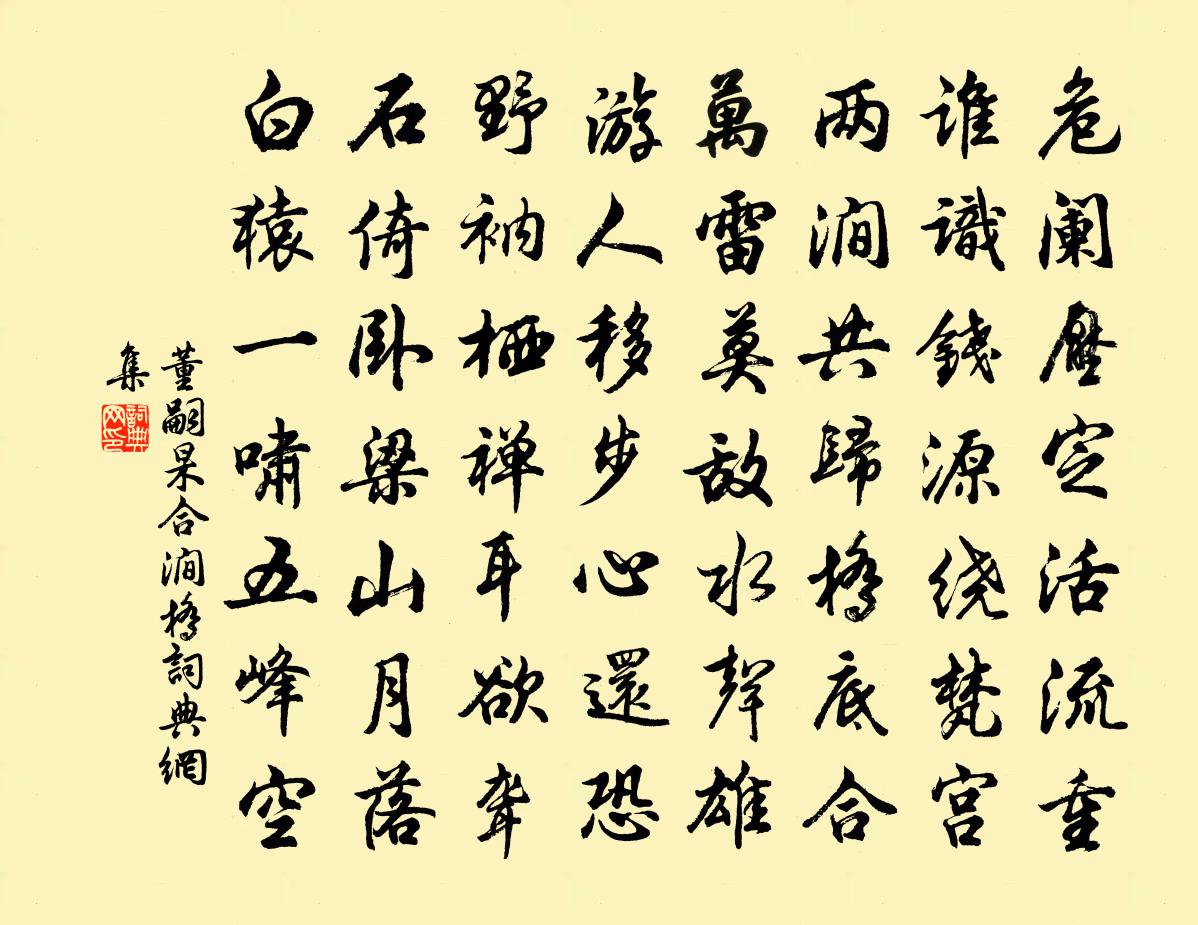 危阑壓定活流重
谁識錢源绕梵宫
两澗共歸橋底合
萬雷莫敌水聲雄
游人移步心還恐
野衲栖禅耳欲聋
石倚卧梁山月落
白猿一啸五峰空
董嗣杲合澗橋詞典網
集
詞典
网印